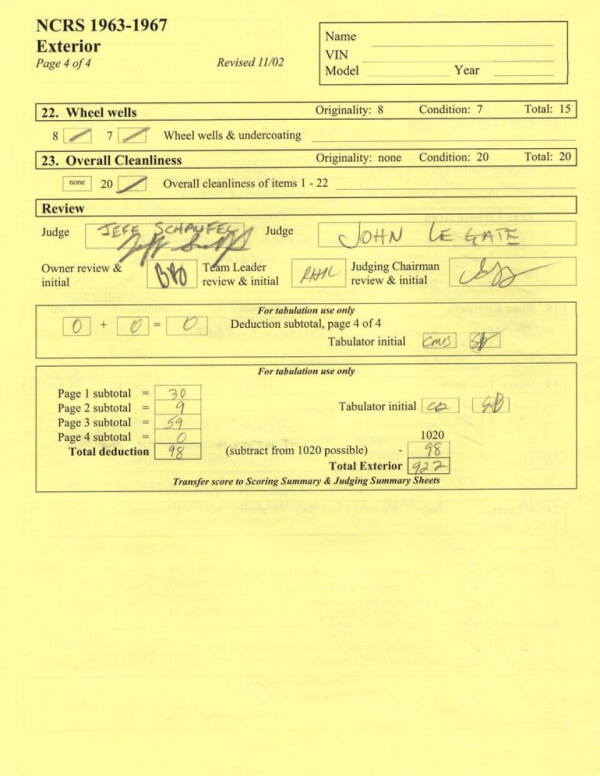 NCRS 1963-1967
Exterior
Page 4 of 4 Revised 11/02
Name
VIN
Model Year
22. Wheel wells Originality: 8 Condition: 7 Total: 15
8 7 Wheel wells & undercoating
23. Overall Cleanliness Originality: none Condition: 20 Total: 20
none 20 Overall cleanliness of items 1 - 22
Review
Judge JEFF Judge JOHN LE GATE
Owner review & initial Team Leader review & initial Judging Chairman review & initial
For tabulation use only
0 + 0 = 0 Deduction subtotal, page 4 of 4
Tabulator initial
For tabulation use only
Page 1 subtotal = 30
Page 2 subtotal = 9 Tabulator initial
Page 3 subtotal = 59
Page 4 subtotal = 0 1020
Total deduction = 98 (subtract from 1020 possible) - 98
Total Exterior 922
Transfer score to Scoring Summary & Judging Summary Sheets